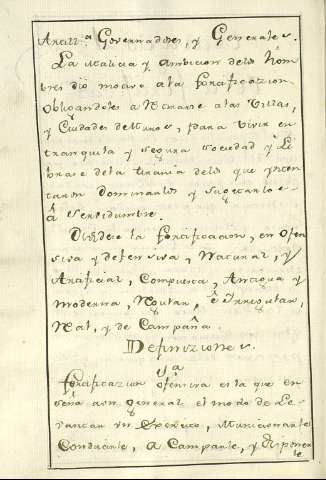 Artill.ª Governadores, y Generales.
La malicia y Ambicion delos Hom
bres dio motivo ala fortificazion
obligandoles a ... alas Villas,
y Ciudades de Muros, para vivir en
tranquila y segura sociedad y Li
brarse dela tirania delos que ynten
taren Dominarlos y sugetarlos
â servidumbre.
Dividese la Fortificacion, en ofen
siva y defensiva, Natural, y
Artificial, Compuesta, Antigua y
moderna, Regular, ê Irregular,
Real, y de Campaña.
Definiziones.
1ª
Fortificazion ofensiva es la que en
seña aun general el modo de Le
vantar un Exercito, Municionarle
Conducirle, a Camparle, y